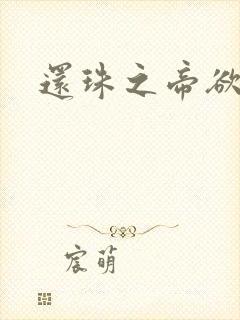 還珠之帝欲
宸萌